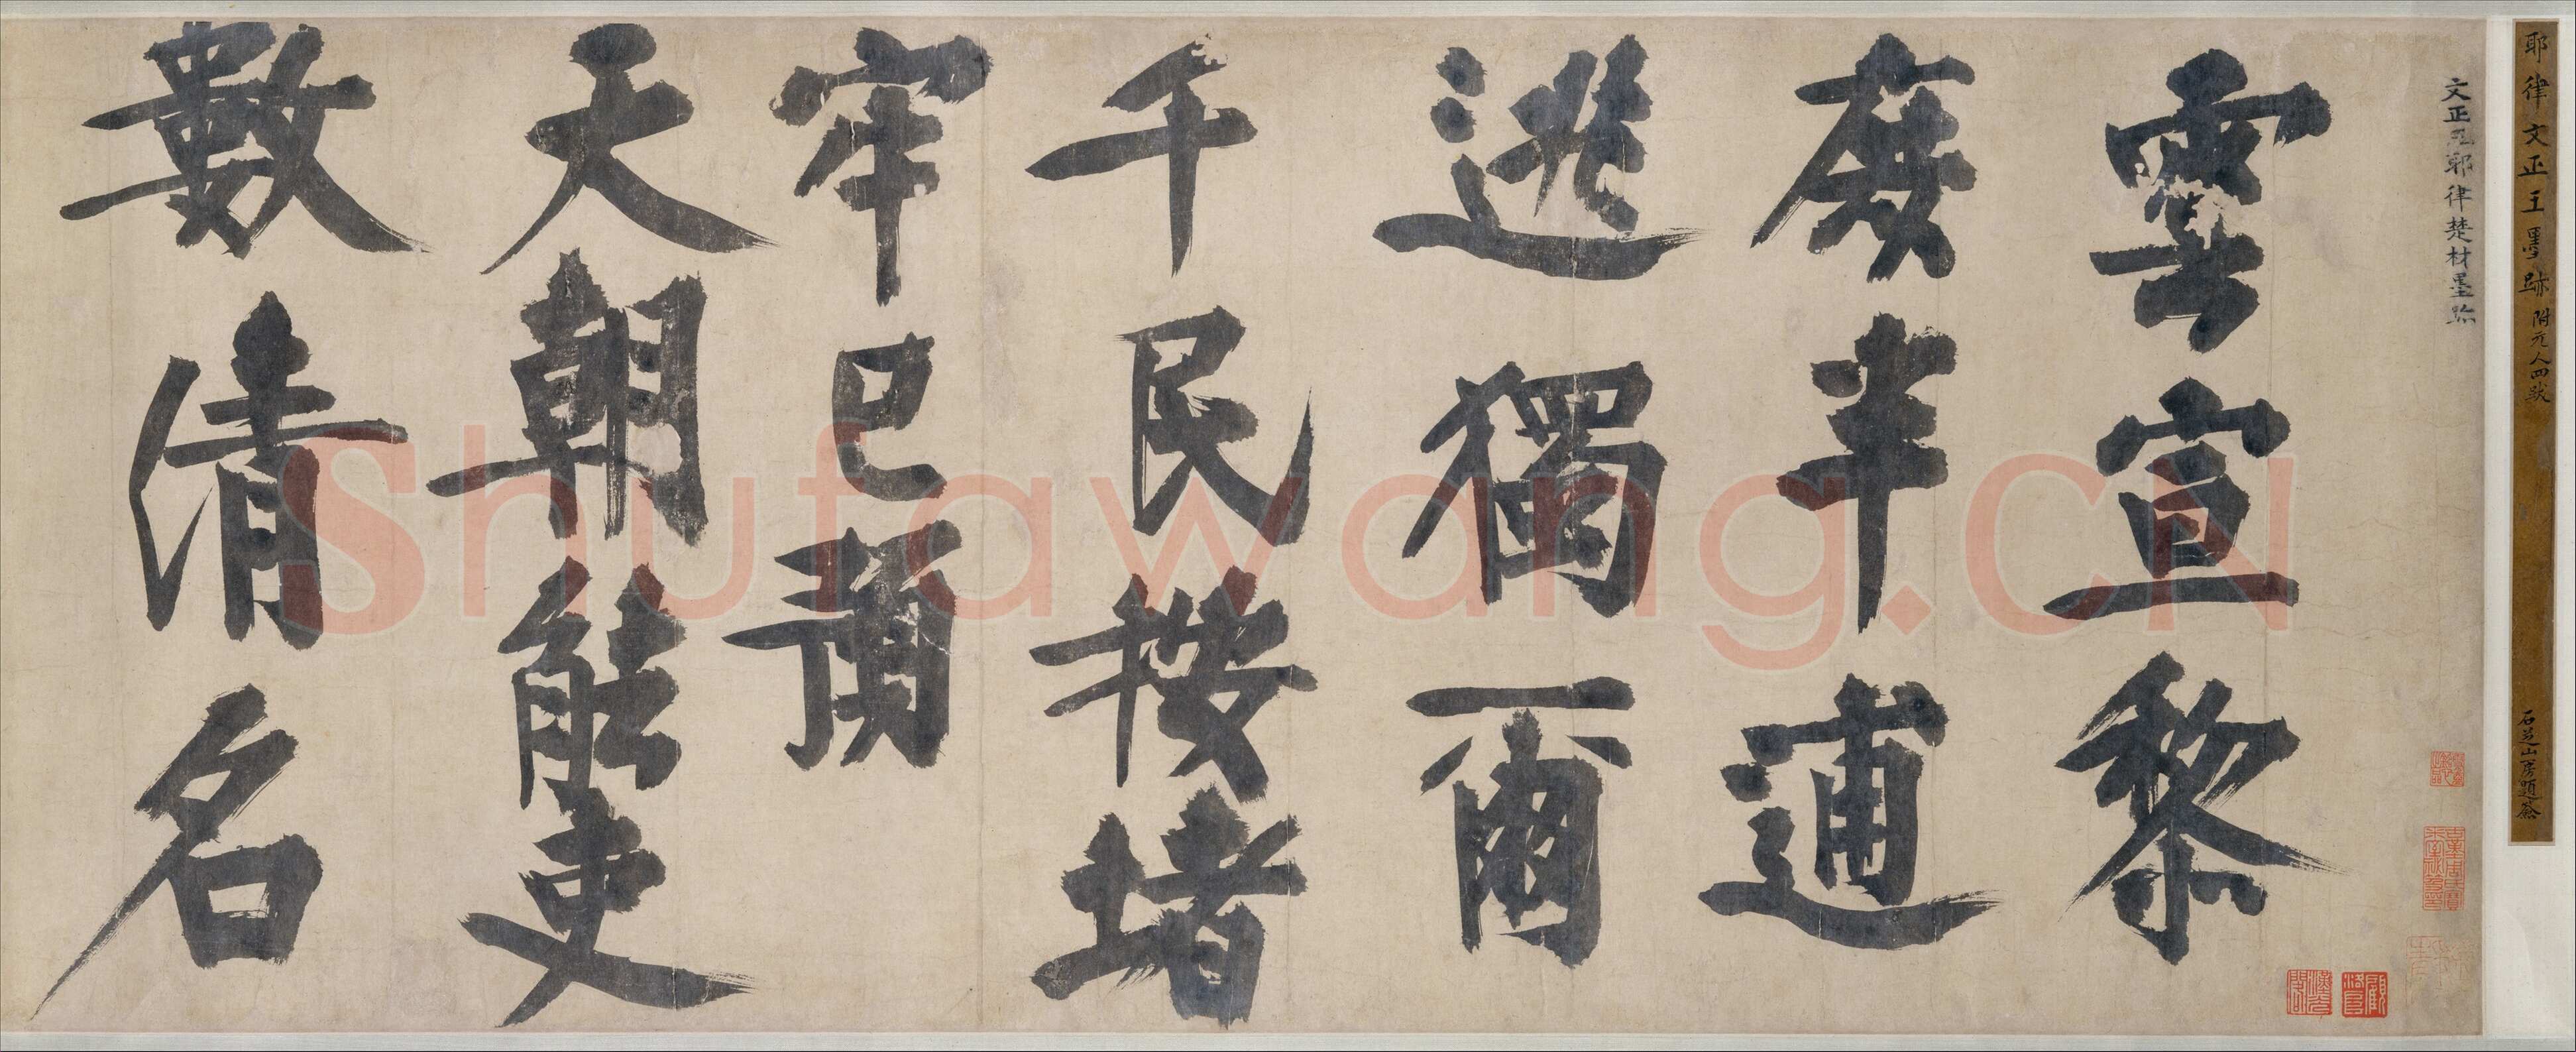 耶律文正王墨跡 附元人四跋
石芝山房題簽
文正王耶律楚材墨跡
雲宣黎
庶半逋
逃獨爾
千民按堵
牢已預
天朝能吏
數清名
Shufawang.CN